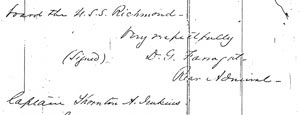 board the U.S.S. Richmond -
Very respectfully
(Signed) D. G. Farragut -
Rear Admiral -
Captain Thornton A. Jenkins -